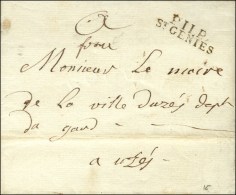 P.11.P.
St GENIES
Monsieur le maire
de la ville duzès dept
du gard
a uzès